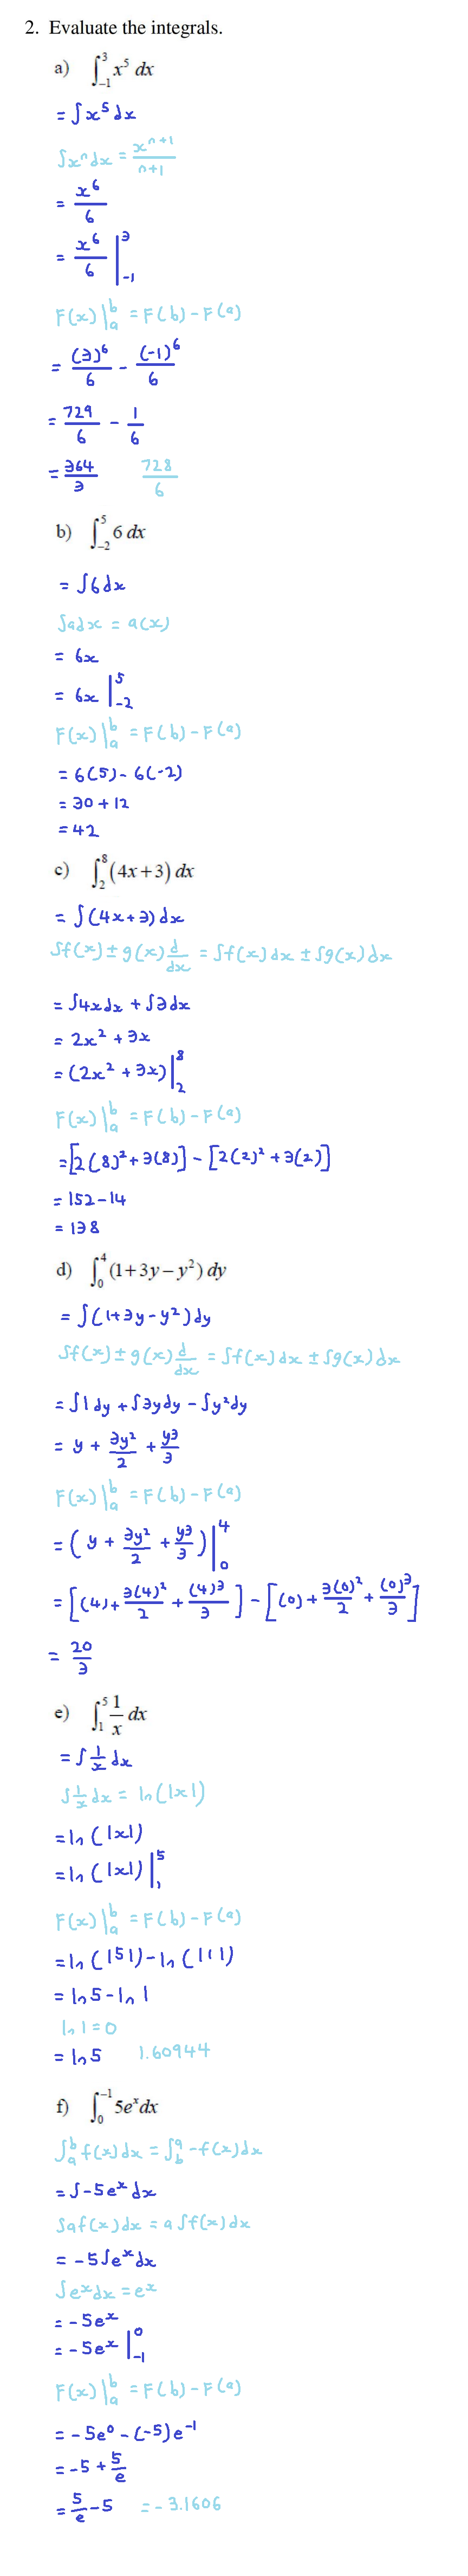 2. Evaluate the integrals.
a) ∫_{-1}^{3} x⁵ dx
= ∫x⁵dx
∫xⁿdx = xⁿ⁺¹/n+1
= x⁶/6
= x⁶/6 |_{-1}^{3}
F(x)|_a^b = F(b) - F(a)
= (3)⁶/6 - (-1)⁶/6
= 729/6 - 1/6
= 364/3 728/6
b) ∫_{-2}^{5} 6 dx
= ∫6dx
∫adx = a(x)
= 6x
= 6x |_{-2}^{5}
F(x)|_a^b = F(b) - F(a)
= 6(5) - 6(-2)
= 30 + 12
= 42
c) ∫_{2}^{8} (4x+3) dx
= ∫(4x+3)dx
∫f(x) ± g(x) d/dx = ∫f(x)dx ± ∫g(x)dx
= ∫4xdx + ∫3dx
= 2x² + 3x
= (2x² + 3x)|_{2}^{8}
F(x)|_a^b = F(b) - F(a)
= [2(8)² + 3(8)] - [2(2)² + 3(2)]
= 152 - 14
= 138
d) ∫_{0}^{4} (1+3y−y²) dy
= ∫(1+3y-y²)dy
∫f(x) ± g(x) d/dx = ∫f(x)dx ± ∫g(x)dx
= ∫1dy + ∫3ydy - ∫y²dy
= y + 3y²/2 + y³/3
F(x)|_a^b = F(b) - F(a)
= (y + 3y²/2 + y³/3)|_{0}^{4}
= [(4) + 3(4)²/2 + (4)³/3] - [(0) + 3(0)²/2 + (0)³/3]
= 20/3
e) ∫_{1}^{5} 1/x dx
= ∫1/x dx
∫1/x dx = ln(|x|)
= ln(|x|)
= ln(|x|)|_{1}^{5}
F(x)|_a^b = F(b) - F(a)
= ln(|5|) - ln(|1|)
= ln5 - ln1
ln1 = 0
= ln5 1.60944
f) ∫_{0}^{-1} 5eˣdx
∫_a^b f(x)dx = ∫_b^a -f(x)dx
= ∫-5eˣdx
∫af(x)dx = a∫f(x)dx
= -5∫eˣdx
∫eˣdx = eˣ
= -5eˣ
= -5eˣ|_{-1}^{0}
F(x)|_a^b = F(b) - F(a)
= -5e⁰ - (-5)e⁻¹
= -5 + 5/e
= 5/e - 5 = -3.1606